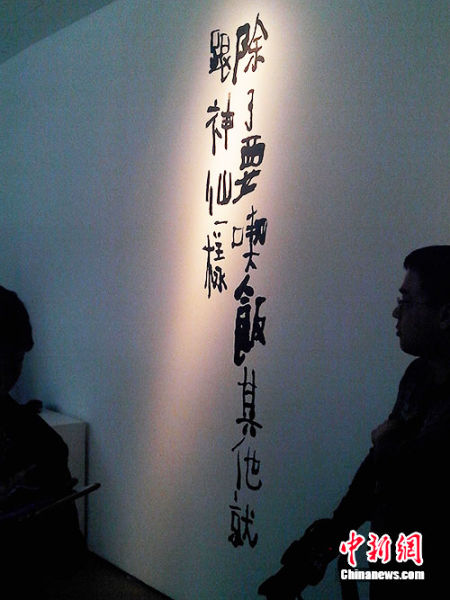 除了要喫飯其他就
跟神仙一樣
中新网
Chinanews.com